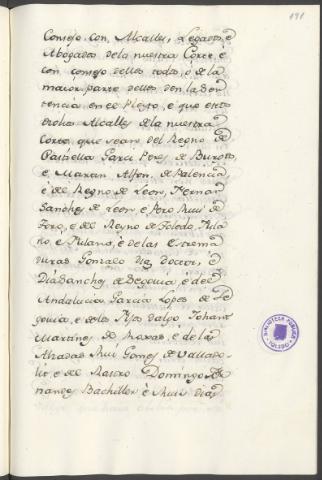 191
Consejo con, Alcalles, Legados, è
Abogados dela nuestra Corte, è
con consejo dellos todos, ò de la
maior parte dellos den la Sen
tencia en el Pleyto, è que estos
dichos Alcalles de la nuestra
Corte, que sean del Regno de
Castiella Garci Perez de Burgos,
e Martin Alfon. de Palencia
è del Regno de Leon, Fernan
Sanchez de Leon, è Pero Ruiz de
Toro, e del Reyno de Toledo, Fula
no e Fulano, è delas Extrema
duras Gonzalo Diaz Doctor, è
Dia Sanchez de Segovia, è de el
Andalucia Garcia Lopez de Se
govia, è delos Fijos dalgo Johan
Martinez de Roxas, è de la
Alzadas Rui Gomez de Vallado
lit, è del Rastro Domingo Fer
nandez Bachiller è Rui Diaz
BIBLIOTECA PUBLICA
TOLEDO